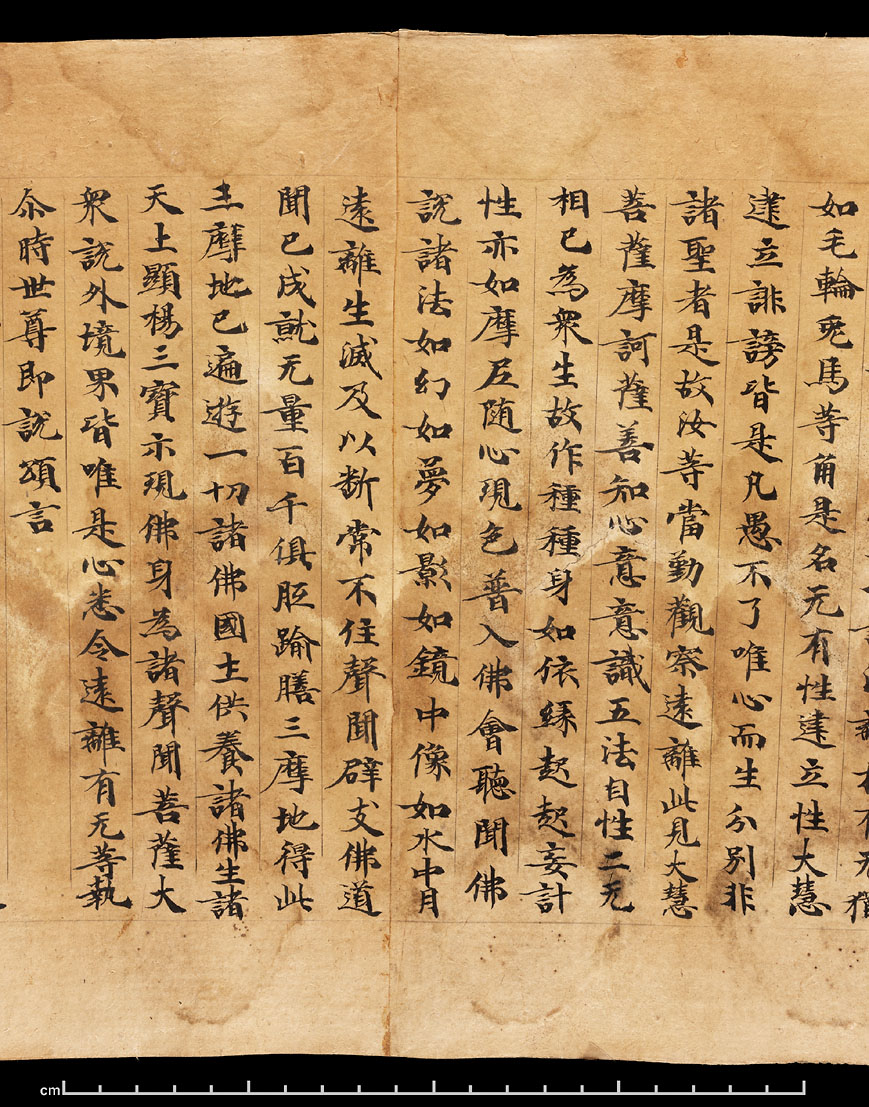 无猶
如毛輪兎馬等角是名无有性建立性大慧
建立誹謗皆是凡愚不了唯心而生分別非
諸聖者是故汝等當勤觀察遠離此見大慧
菩薩摩訶薩善知心意意識五法自性二无
相已為衆生故作種種身如依緣起起妄計
性亦如摩尼随心現色普入佛會聽聞佛
說諸法如幻如夢如影如鏡中像如水中月
遠離生滅及以断常不住聲聞辟支佛道
聞已成就无量百千俱胝踰膳三摩地得此
三摩地已遍遊一切諸佛國土供養諸佛生諸
天上顯楊三寶示現佛身為諸聲聞菩薩大
衆說外境果皆唯是心悉令遠離有无等執
尒時世尊即說頌言